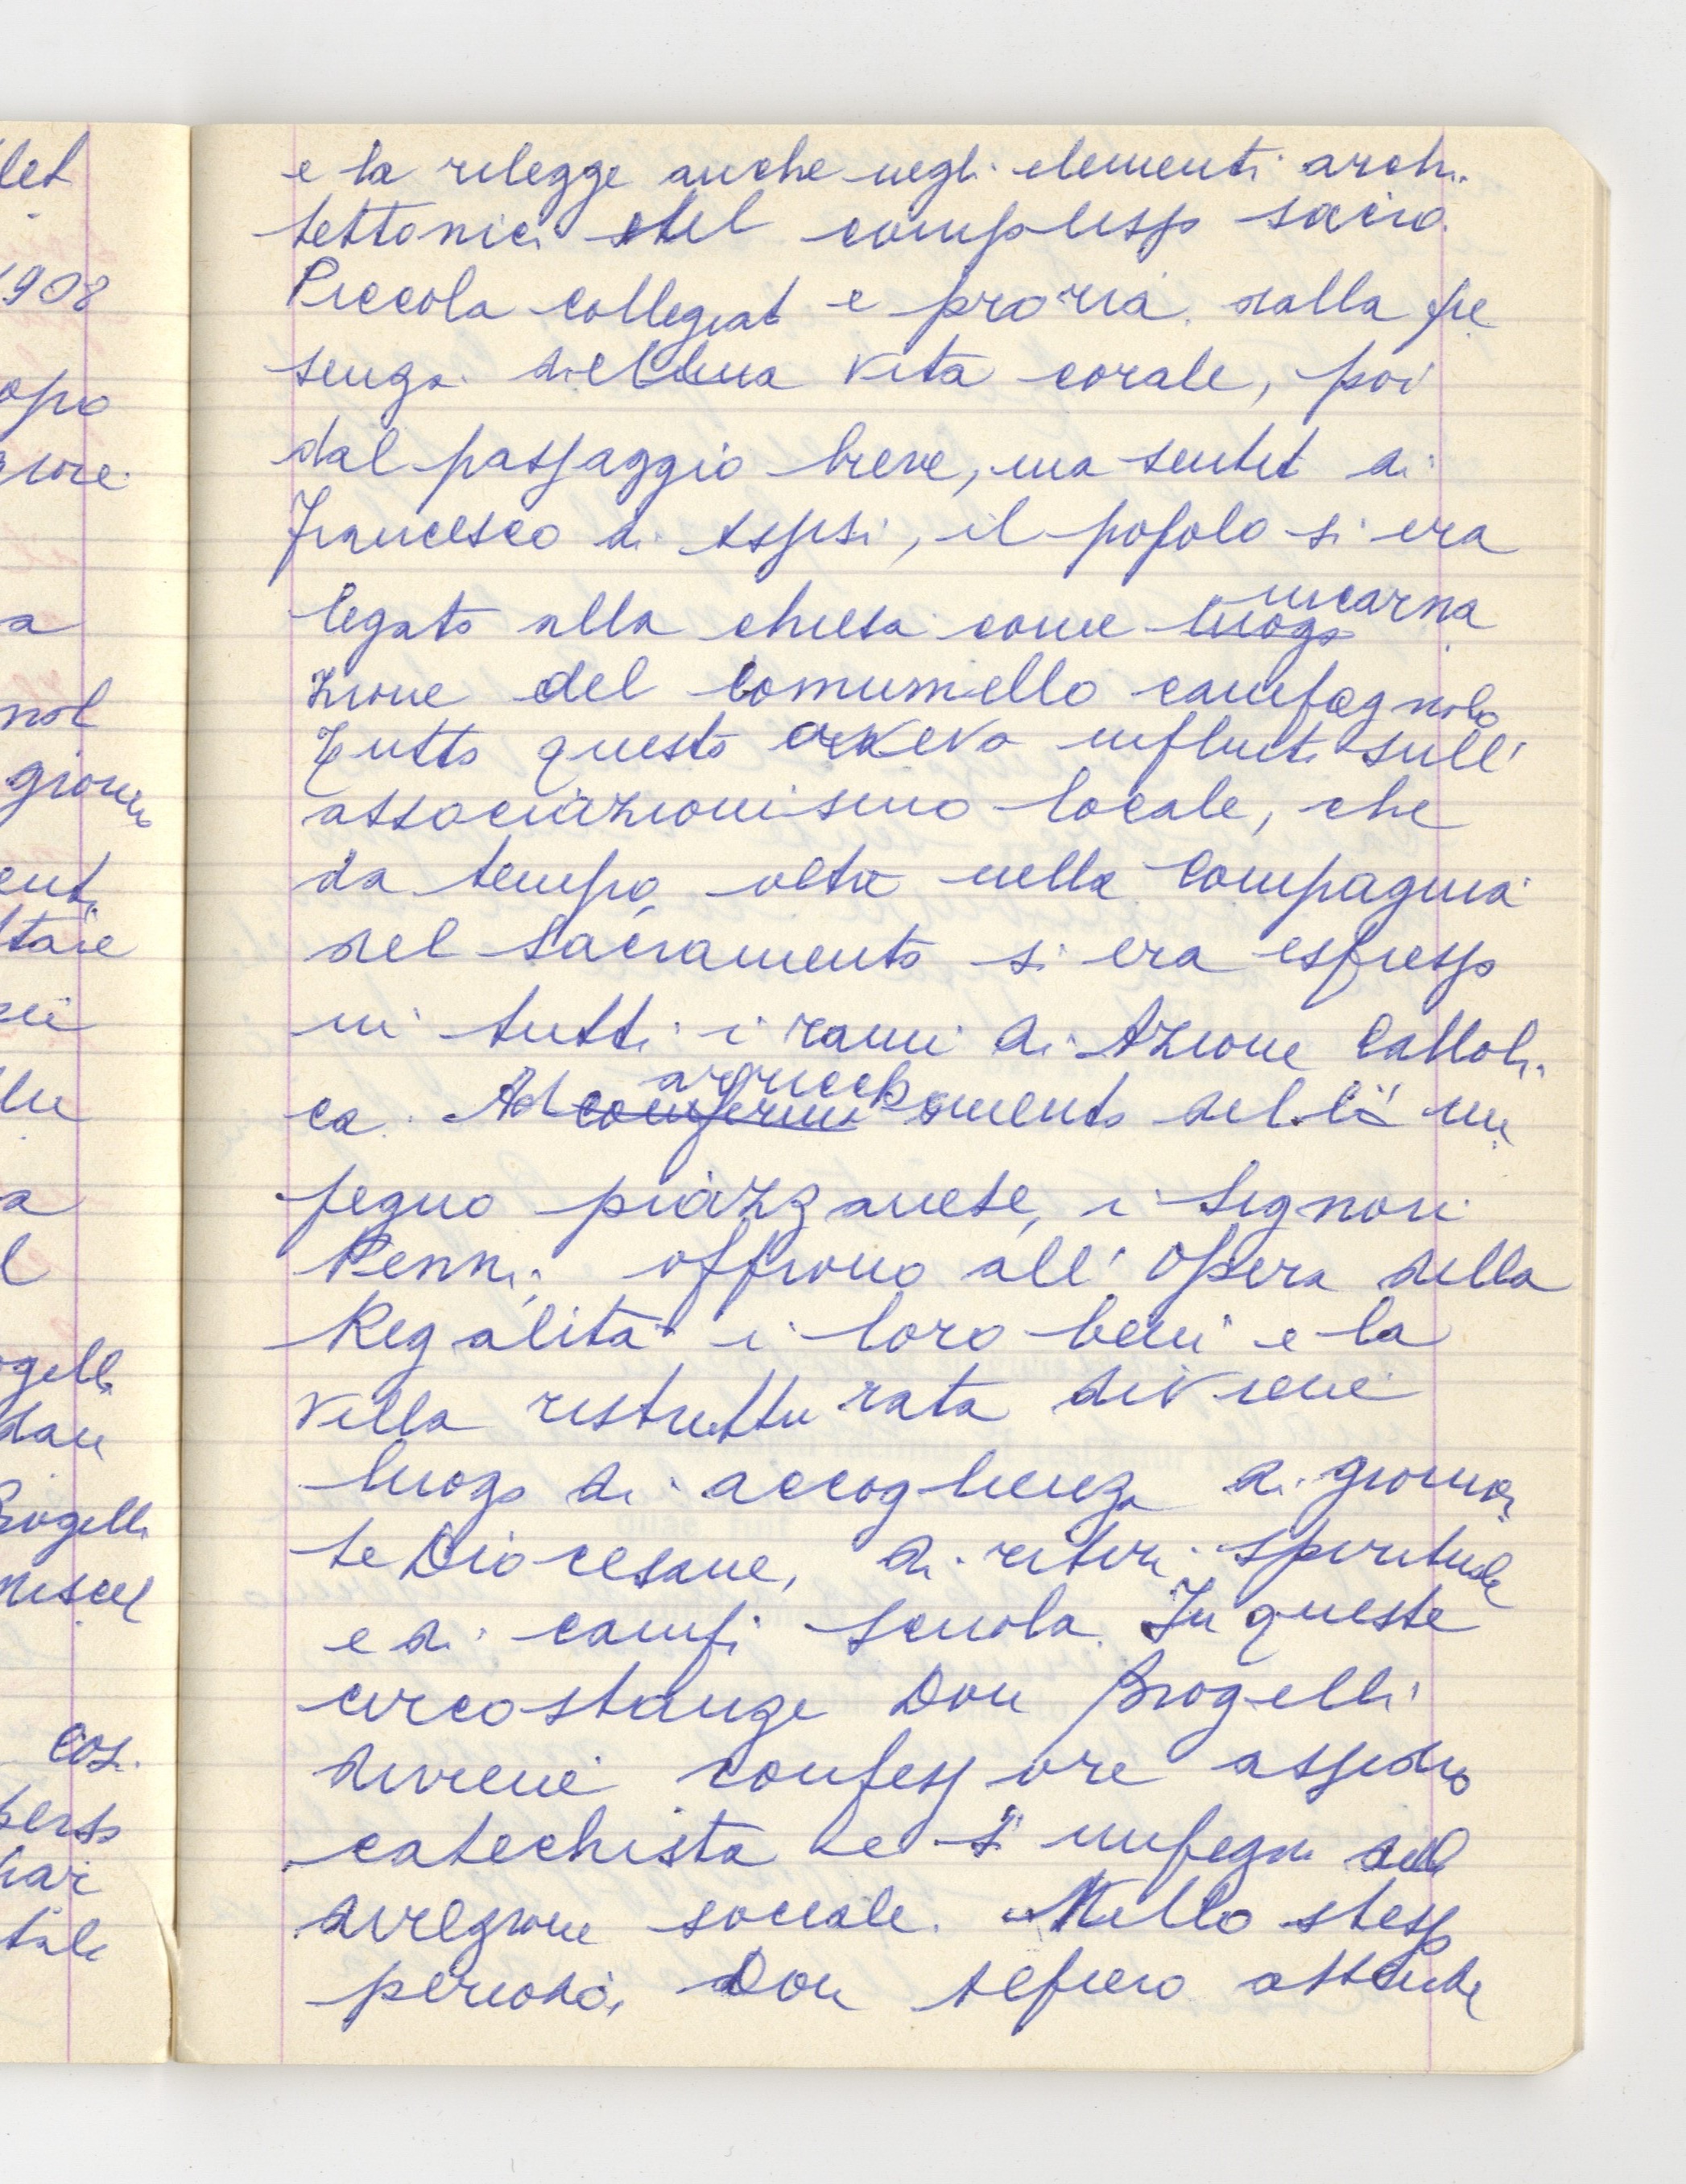 let
1908
opo
a
nol
ent
a
l
ogelli
dan
Brogelli
cos.
perso
tale
e la rilegge anche negli elementi archi
tettonici del complesso sacro.
Piccola collegiat e prioria dalla pre
senza della una vita corale, poi
dal passaggio breve, ma sentit di
Francesco di Assisi, il popolo si era
legato alla chiesa come luogo incarna
zione del Comunello campagnolo
Tutto questo aveva influito sull'
associazionismo locale, che
da tempo, oltre nella Compagnia
del Sacramento si era espresso
in tutti i rami di Azione Cattoli
ca. Ad conferm arricchimento dell' im
pegno piazzanese, i Signori
Penni, offrono all' Opera della
Regalità i loro beni e la
Villa ristrutturata diviene
luogo di accoglienza di giorna
te Diocesane, di ritiri spirituali
e di campi scuola. In queste
circostanze Don Brogelli
diviene confessore assiduo
catechista e s' impegn nell
direzione sociale. Nello stesso
periodo, Don